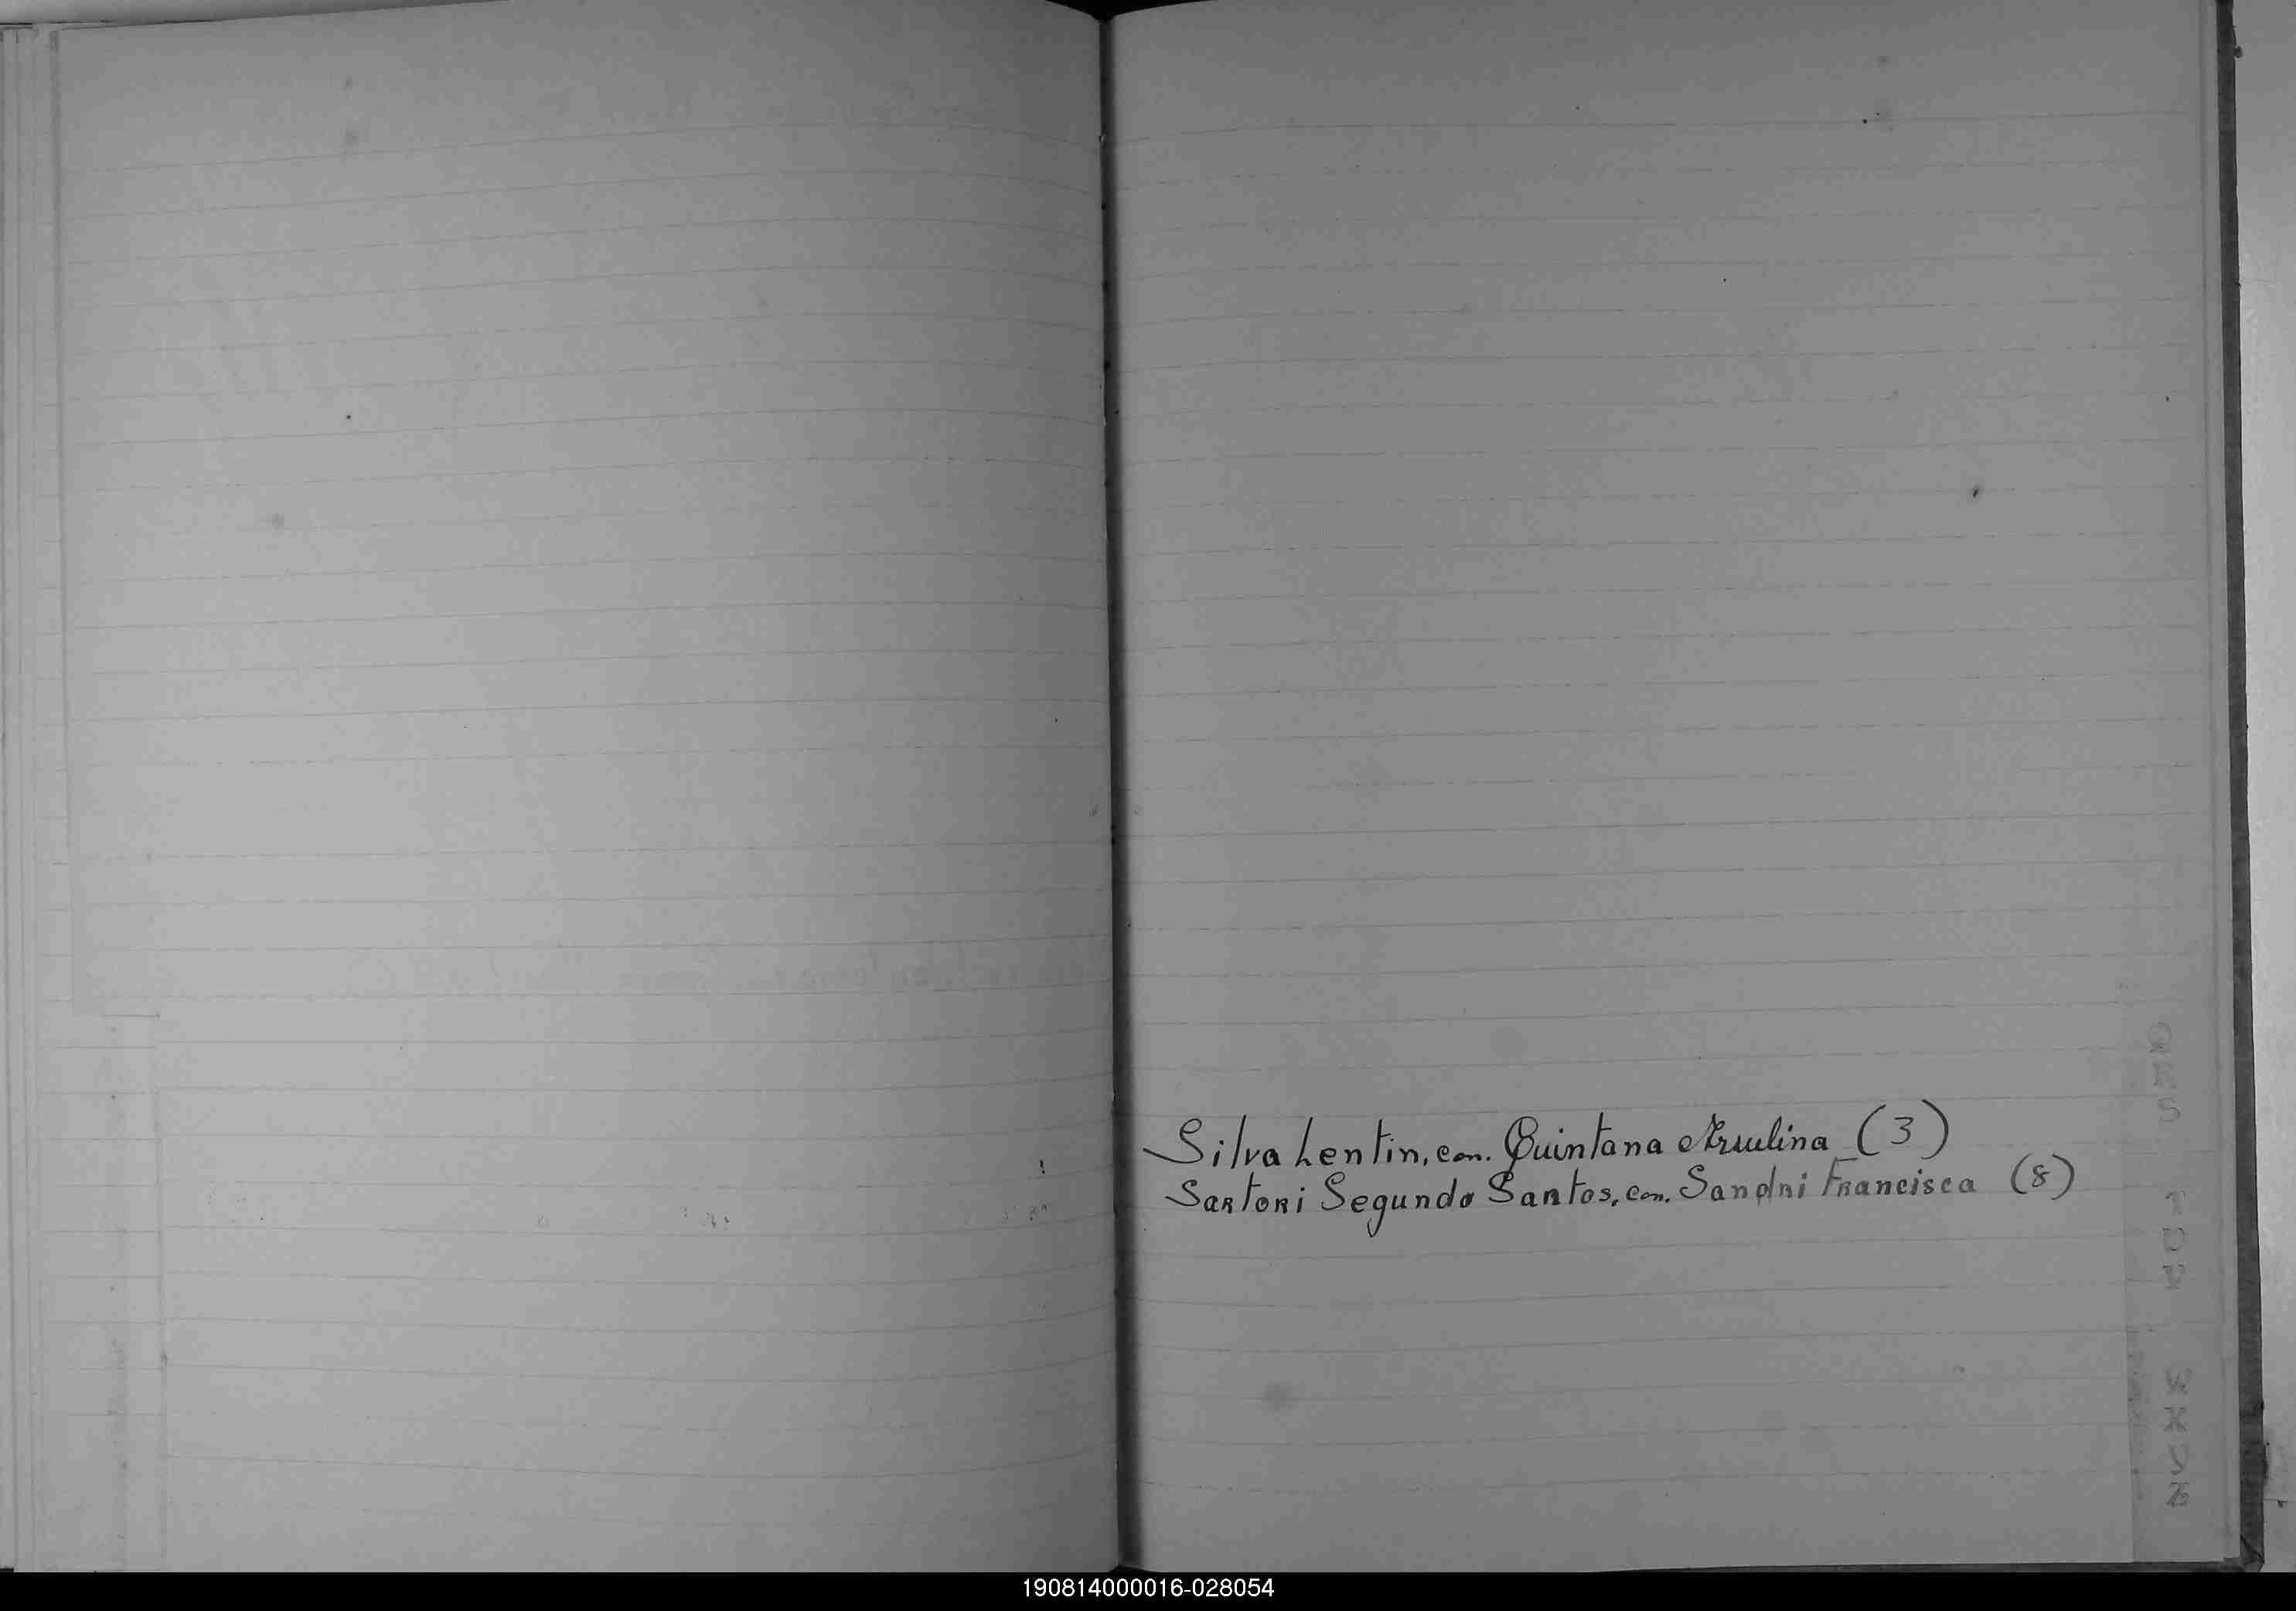 Silva Lentin, con. Quintana Arsulina (3)
Sartori Segundo Santos, con. Sandri Francisca (8)
190814000016-028054